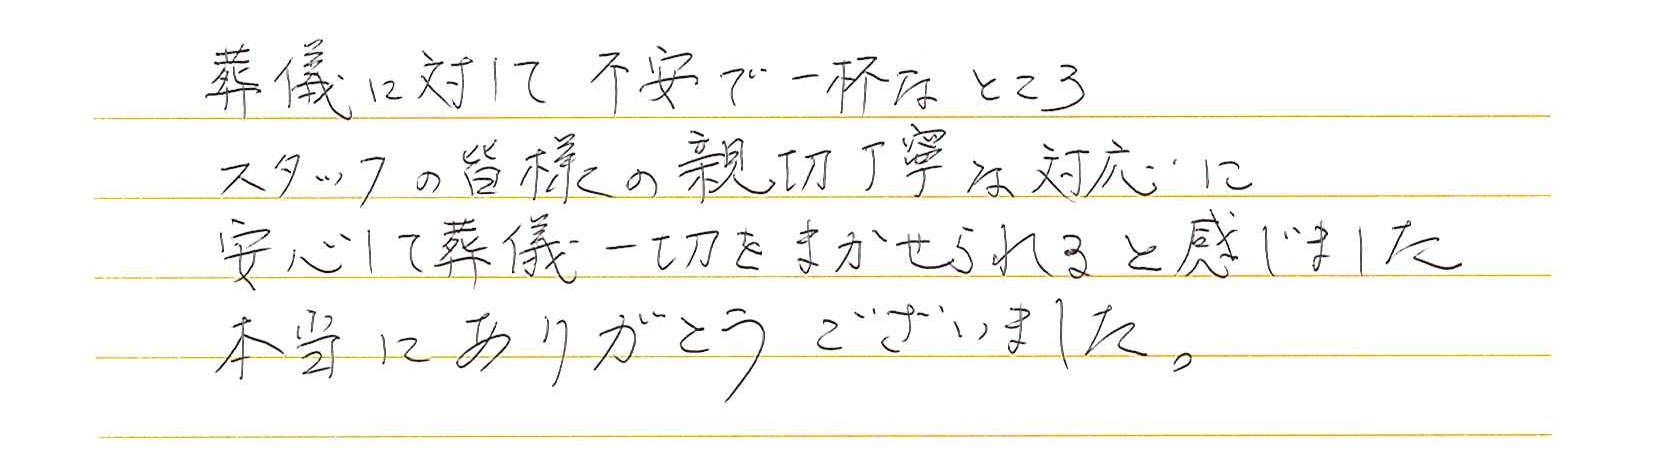 葬儀に対して不安で一杯なところ
スタッフの皆様の親切丁寧な対応に
安心して葬儀一切をまかせられると感じました
本当にありがとうございました。